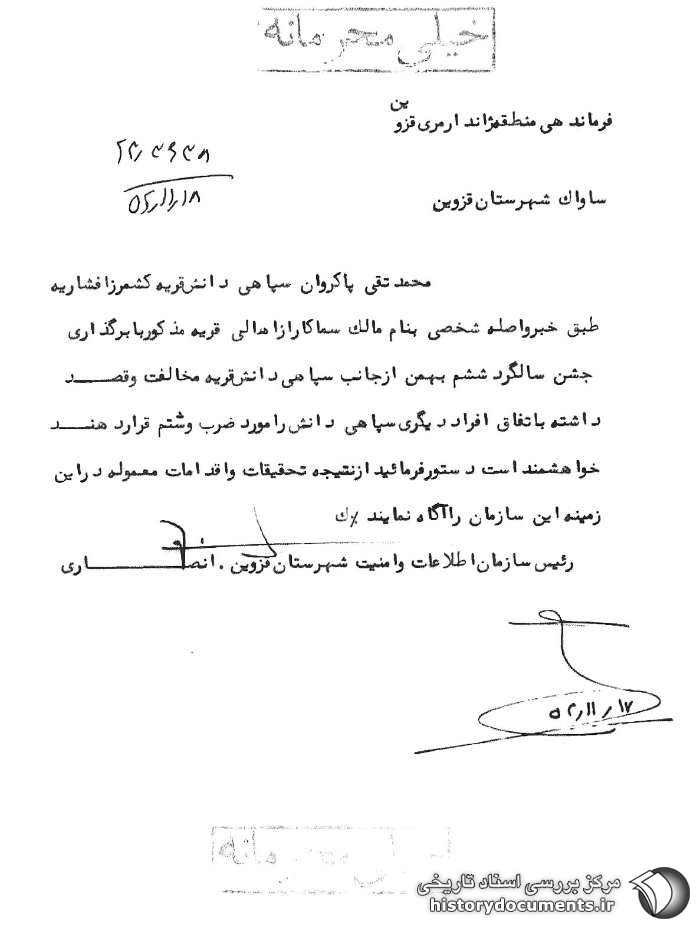 خیلی محرمانه
فرماندهی منطقه ژاندارمری قزوین
۵۲/۱۱/۱۸
ساواك شهرستان قزوین
محمد تقی پاکروان سپاهی دانش قریه کشمرز افشاریه
طبق خبر واصله شخصی بنام مالك سماکار از اهالی قریه مذکور با برگذاری
جشن سالگرد ششم بهمن از جانب سپاهی دانش قریه مخالفت و قصد
داشته باتفاق افراد دیگری سپاهی دانش را مورد ضرب و شتم قرار دهند
خواهشمند است دستور فرمائید از نتیجه تحقیقات و اقدامات معموله در این
زمینه این سازمان را آگاه نمایند /ك
رئیس سازمان اطلاعات و امنیت شهرستان قزوین . انصاری
۵۲/۱۱/۱۷
خیلی محرمانه
مرکز بررسی اسناد تاریخی
historydocuments.ir